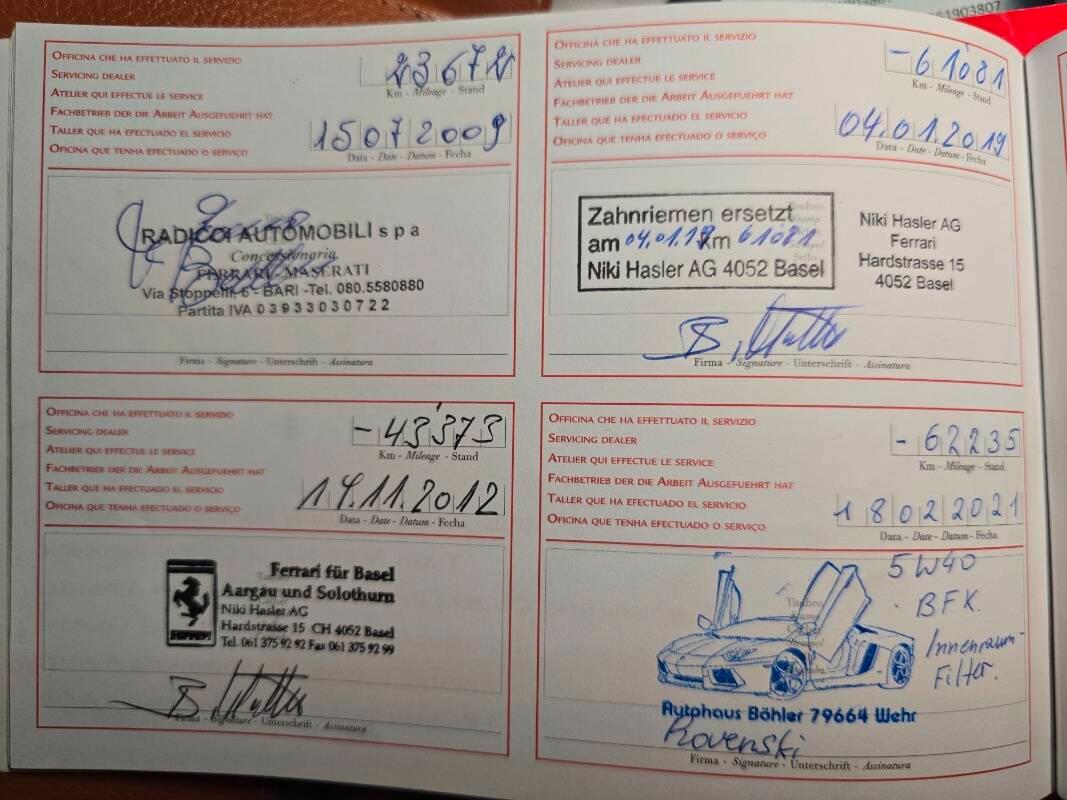 1903807
OFFICINA CHE HA EFFETTUATO IL SERVIZIO
SERVICING DEALER
ATELIER QUI EFFECTUE LE SERVICE
FACHBETRIEB DER DIE ARBEIT AUSGEFUEHRT HAT
TALLER QUE HA EFECTUADO EL SERVICIO
OFICINA QUE TENHA EFECTUADO O SERVIÇO
23672
Km - Mileage - Stand
15072009
Data - Date - Datum - Fecha
RADICCI AUTOMOBILI s p a
Concessionaria
FERRARI - MASERATI
Via Stoppelli, 6 - BARI - Tel. 080.5580880
Partita IVA 03933030722
Firma - Signature - Unterschrift - Assinatura
OFFICINA CHE HA EFFETTUATO IL SERVIZIO
SERVICING DEALER
ATELIER QUI EFFECTUE LE SERVICE
FACHBETRIEB DER DIE ARBEIT AUSGEFUEHRT HAT
TALLER QUE HA EFECTUADO EL SERVICIO
OFICINA QUE TENHA EFECTUADO O SERVIÇO
- 61'081
Km - Mileage - Stand
04.01.2019
Data - Date - Datum - Fecha
Timbro
Stamp
Zahnriemen ersetzt
am 04.01.19 km 61081
Niki Hasler AG 4052 Basel
Niki Hasler AG
Ferrari
Hardstrasse 15
4052 Basel
Firma - Signature - Unterschrift - Assinatura
OFFICINA CHE HA EFFETTUATO IL SERVIZIO
SERVICING DEALER
ATELIER QUI EFFECTUE LE SERVICE
FACHBETRIEB DER DIE ARBEIT AUSGEFUEHRT HAT
TALLER QUE HA EFECTUADO EL SERVICIO
OFICINA QUE TENHA EFECTUADO O SERVIÇO
- 43'373
Km - Mileage - Stand
14.11.2012
Data - Date - Datum - Fecha
Ferrari für Basel
Aargau und Solothurn
Niki Hasler AG
Hardstrasse 15 CH 4052 Basel
Tel. 061 375 92 92 Fax 061 375 92 99
Firma - Signature - Unterschrift - Assinatura
OFFICINA CHE HA EFFETTUATO IL SERVIZIO
SERVICING DEALER
ATELIER QUI EFFECTUE LE SERVICE
FACHBETRIEB DER DIE ARBEIT AUSGEFUEHRT HAT
TALLER QUE HA EFECTUADO EL SERVICIO
OFICINA QUE TENHA EFECTUADO O SERVIÇO
- 62235
Km - Mileage - Stand
18022021
Data - Date - Datum - Fecha
5W40
BFK.
Innenraum-
Filter.
Timbro
Stamp
Autohaus Böhler 79664 Wehr
Rovenski
Firma - Signature - Unterschrift - Assinatura